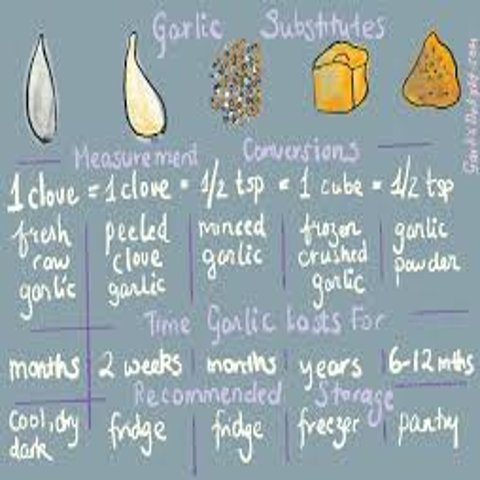 Garlic Substitutes
Measurement Conversions
1 clove = 1 clove = 1/2 tsp = 1 cube = 1/2 tsp
fresh raw garlic
peeled clove garlic
minced garlic
frozen crushed garlic
garlic powder
Time Garlic Lasts For
months 2 weeks months years 6-12 mths
Recommended Storage
cool, dry dark
fridge
fridge
freezer
pantry